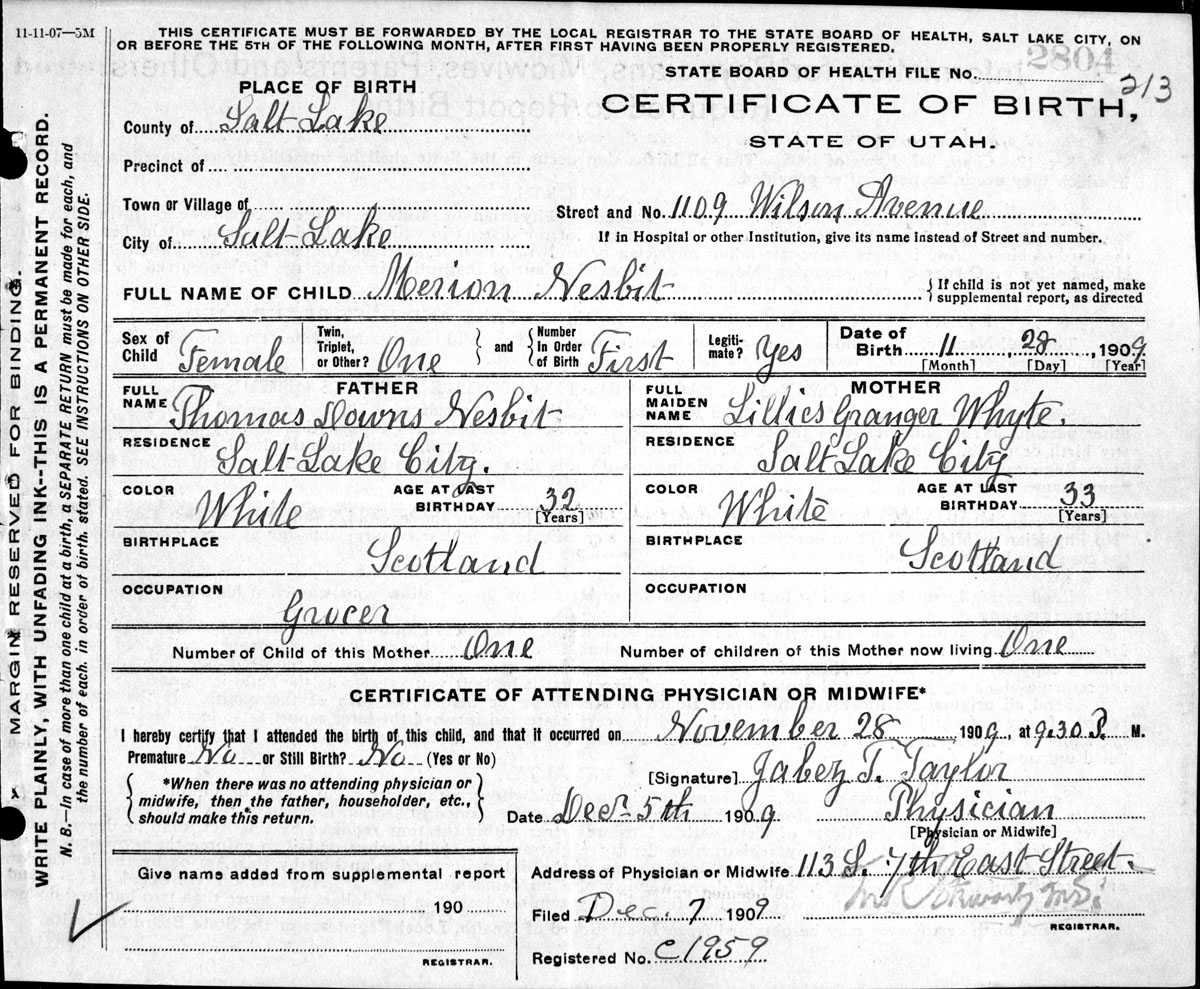 11-11-07—5M
THIS CERTIFICATE MUST BE FORWARDED BY THE LOCAL REGISTRAR TO THE STATE BOARD OF HEALTH, SALT LAKE CITY, ON
OR BEFORE THE 5TH OF THE FOLLOWING MONTH, AFTER FIRST HAVING BEEN PROPERLY REGISTERED.
2804
STATE BOARD OF HEALTH FILE No. 213
PLACE OF BIRTH
CERTIFICATE OF BIRTH,
STATE OF UTAH.
County of Salt Lake
Precinct of
Town or Village of
Street and No. 1109 Wilson Avenue
City of Salt Lake
If in Hospital or other Institution, give its name instead of Street and number.
FULL NAME OF CHILD Merion Nesbit
If child is not yet named, make
supplemental report, as directed
Sex of Child Female
Twin, Triplet, or Other? One
and
Number In Order of Birth First
Legiti-mate? Yes
Date of Birth 11, 28, 1909
[Month] [Day] [Year]
FATHER
FULL NAME Thomas Downs Nesbit
RESIDENCE Salt Lake City.
COLOR White
AGE AT LAST BIRTHDAY 32 [Years]
BIRTHPLACE Scotland
OCCUPATION Grocer
MOTHER
FULL MAIDEN NAME Lillies Granger Whyte.
RESIDENCE Salt Lake City
COLOR White
AGE AT LAST BIRTHDAY 33 [Years]
BIRTHPLACE Scotland
OCCUPATION
Number of Child of this Mother One
Number of children of this Mother now living One
CERTIFICATE OF ATTENDING PHYSICIAN OR MIDWIFE*
I hereby certify that I attended the birth of this child, and that it occurred on November 28, 1909, at 9.30 P. M.
Premature No or Still Birth? No (Yes or No)
*When there was no attending physician or
midwife, then the father, householder, etc.,
should make this return.
[Signature] Jabez T. Taylor
Date Dec. 5th 1909 Physician
[Physician or Midwife]
Give name added from supplemental report
190
REGISTRAR.
Address of Physician or Midwife 113 S. 7th East Street.
Filed Dec. 7 1909
REGISTRAR.
Registered No. C1959
MARGIN RESERVED FOR BINDING.
WRITE PLAINLY, WITH UNFADING INK--THIS IS A PERMANENT RECORD.
N. B.—In case of more than one child at a birth, a SEPARATE RETURN must be made for each, and
the number of each. in order of birth. stated. SEE INSTRUCTIONS ON OTHER SIDE.